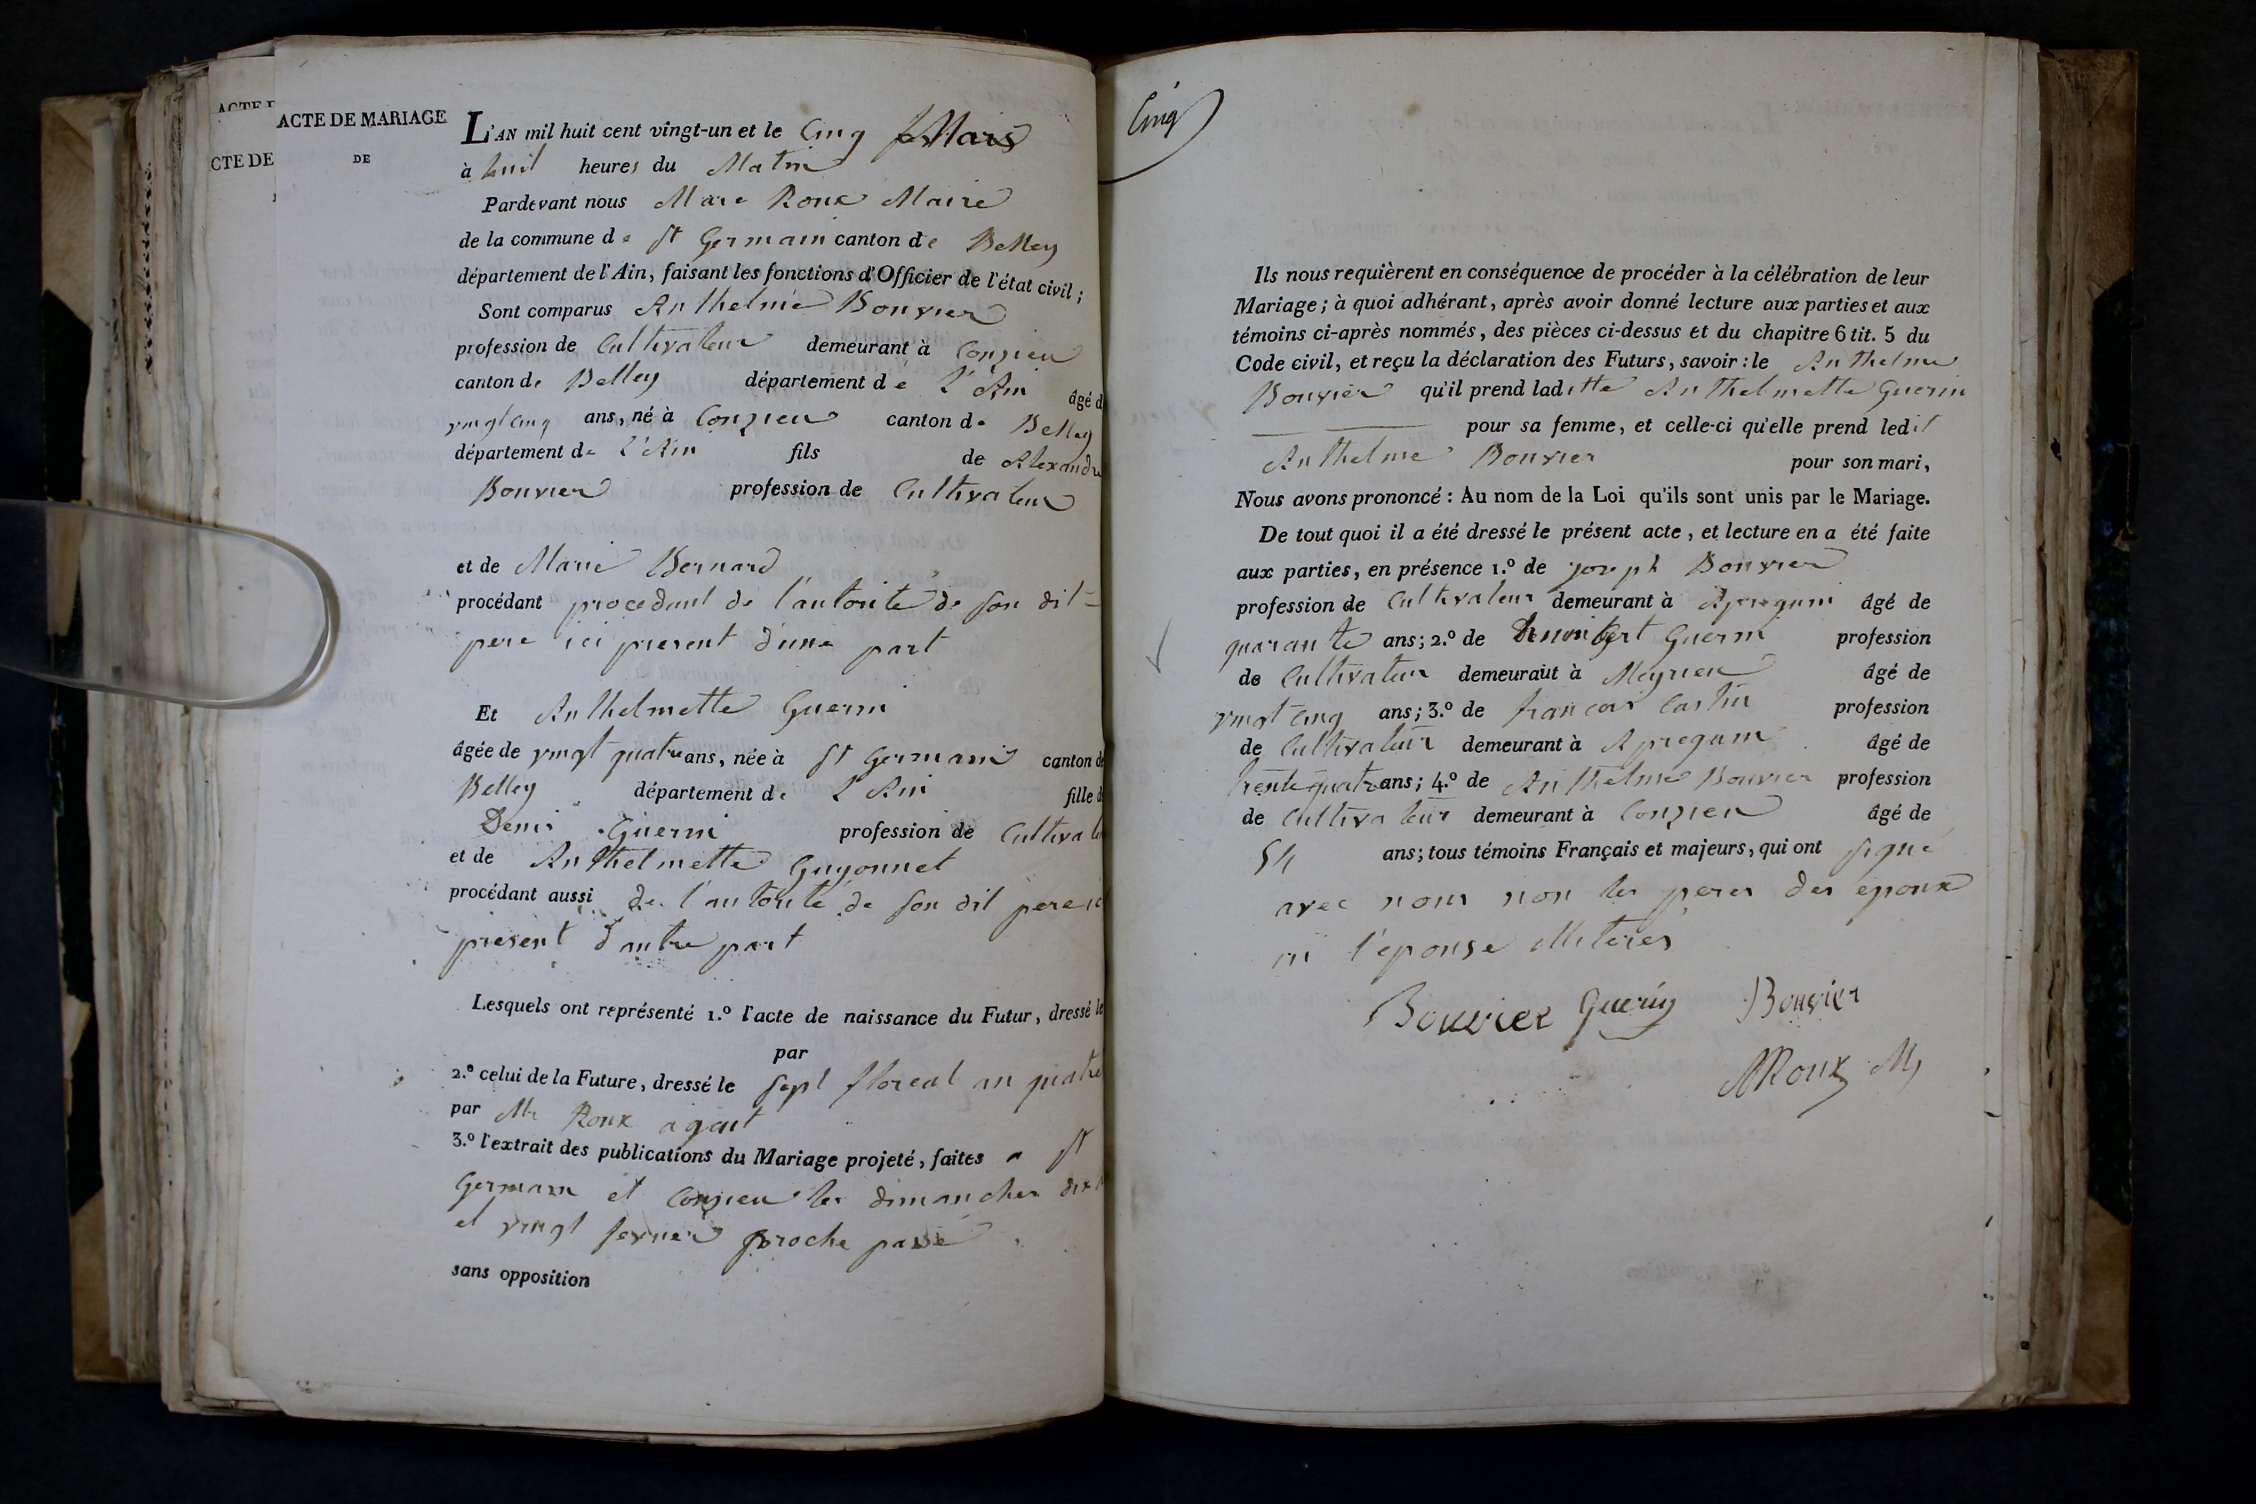 ACTE DE MARIAGE
DE
CTE DE
L'AN mil huit cent vingt-un et le Cinq Mars
à huit heures du Matin
Pardevant nous Marc Roux Maire
de la commune de St Germain canton de Belley
département de l'Ain, faisant les fonctions d'Officier de l'état civil;
Sont comparus Anthelme Bouvier
profession de Cultivateur demeurant à Conzieu
canton de Belley département de L'Ain âgé d
vingt cinq ans, né à Conzieu canton de Belley
département de L'Ain fils de Alexandre
Bouvier profession de Cultivateur
et de Marie Bernard
procédant procedant de l'autorité de son dit
pere ici present d'une part
Et Anthelmette Guerin
âgée de vingt quatre ans, née à St Germain canton de
Belley département de L'Ain fille d
Denis Guerin profession de Cultivate
et de Anthelmette Guyonnet
procédant aussi de l'autorité de son dit pere ic
present d'autre part
Lesquels ont représenté 1.º l'acte de naissance du Futur, dressé le
par
2.º celui de la Future, dressé le sept floreal an quatre
par Mr Roux agent
3.º l'extrait des publications du Mariage projeté, faites a St
Germain et Conzieu les dimanches dix
et vingt fevrier proche passé
sans opposition
Cinq
Ils nous requièrent en conséquence de procéder à la célébration de leur
Mariage; à quoi adhérant, après avoir donné lecture aux parties et aux
témoins ci-après nommés, des pièces ci-dessus et du chapitre 6 tit. 5 du
Code civil, et reçu la déclaration des Futurs, savoir: le Anthelme
Bouvier qu'il prend laditte Anthelmette Guerin
pour sa femme, et celle-ci qu'elle prend ledit
Anthelme Bouvier pour son mari,
Nous avons prononcé: Au nom de la Loi qu'ils sont unis par le Mariage.
De tout quoi il a été dressé le présent acte, et lecture en a été faite
aux parties, en présence 1.º de joseph Bouvier
profession de Cultivateur demeurant à Apregnin âgé de
quarante ans; 2.º de Guerin profession
de Cultivateur demeurant à Meyrieu âgé de
vingt cinq ans; 3.º de francois Castin profession
de Cultivateur demeurant à Apregnin âgé de
trente quatre ans; 4.º de Anthelme Bouvier profession
de Cultivateur demeurant à Conzieu âgé de
54 ans; tous témoins Français et majeurs, qui ont signé
avec nous non les peres des epoux
ni l'epouse illiteres
Bouvier Guerin Bouvier
MRoux M